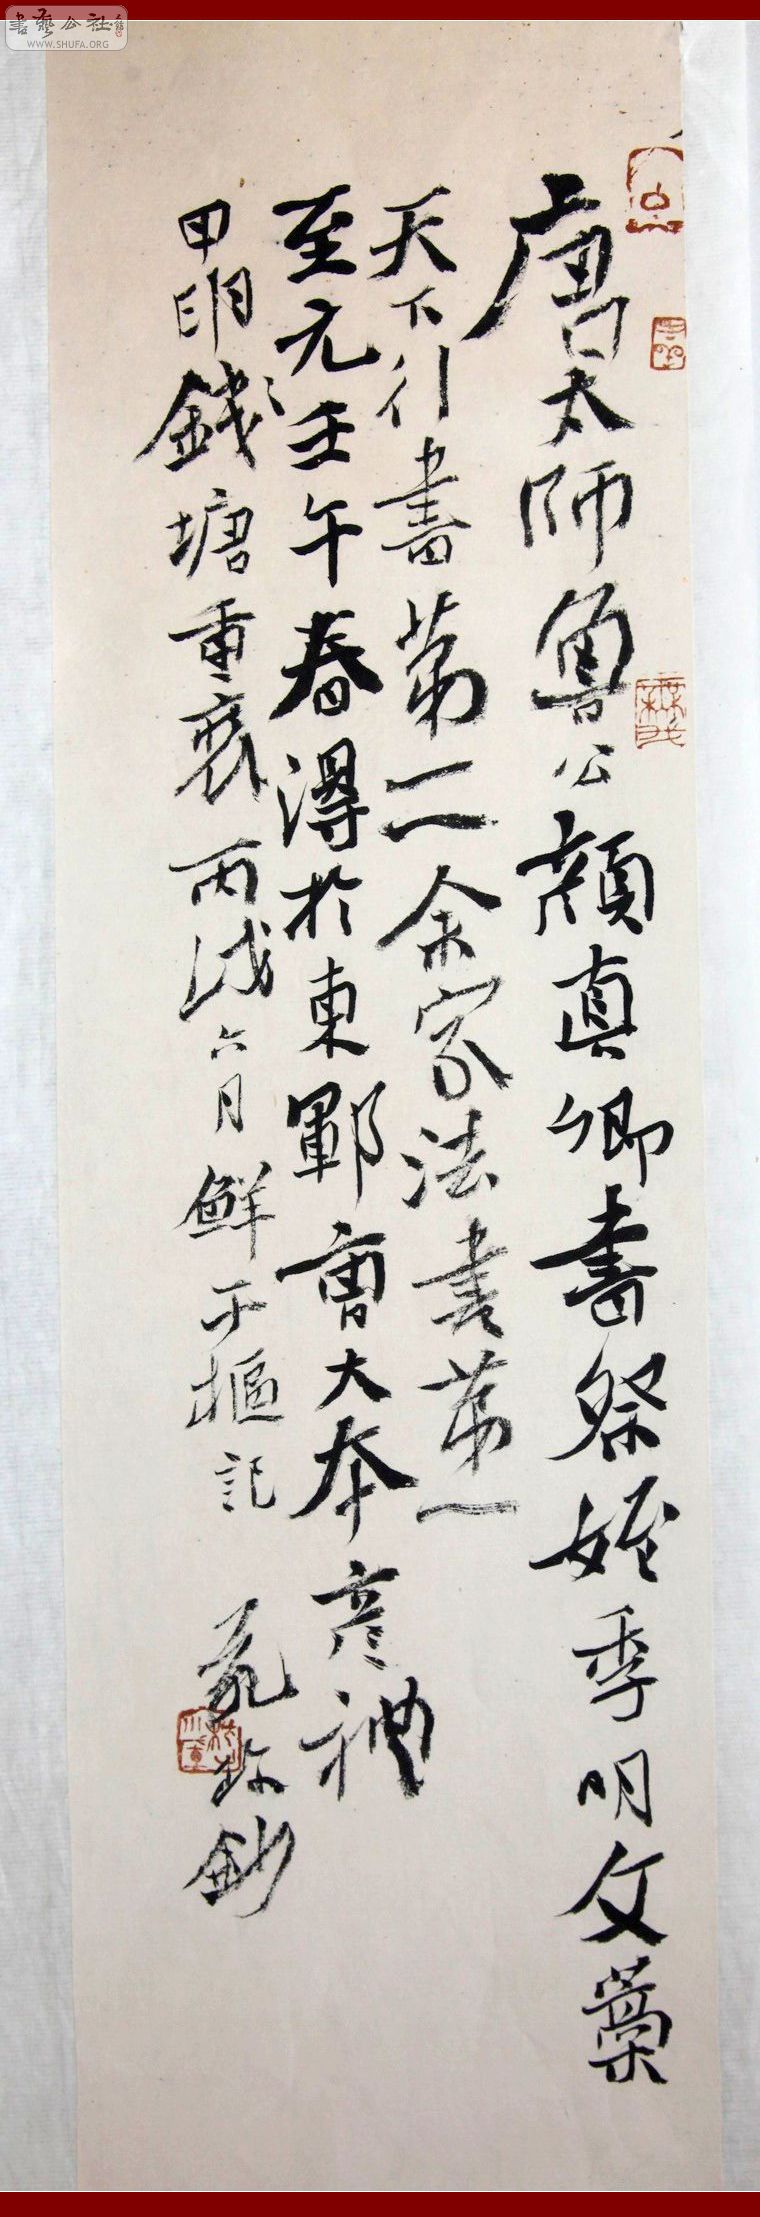 唐太師魯公顏真卿書祭姪季明文藁
天下行書第二余家法書第一
至元壬午春得於東鄆曹大本彥禮
甲申明錢塘重裝丙戌六月鮮于樞記
鈔
書藝公社
WWW.SHUFA.ORG